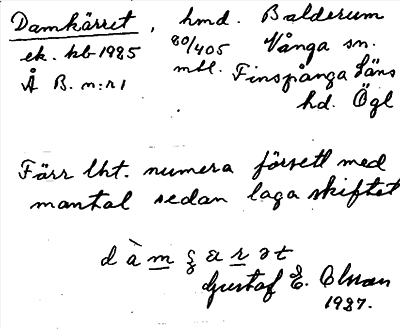 Damkärret, hmd. Balderum
ek. kb 1985 80/405 Vånga sn.
Å B. n:r 1 mtl. Finspånga läns
hd. Ögl
Förr lht. numera försett med
mantal sedan laga skiftet
Gustaf E. Olsson
1937.